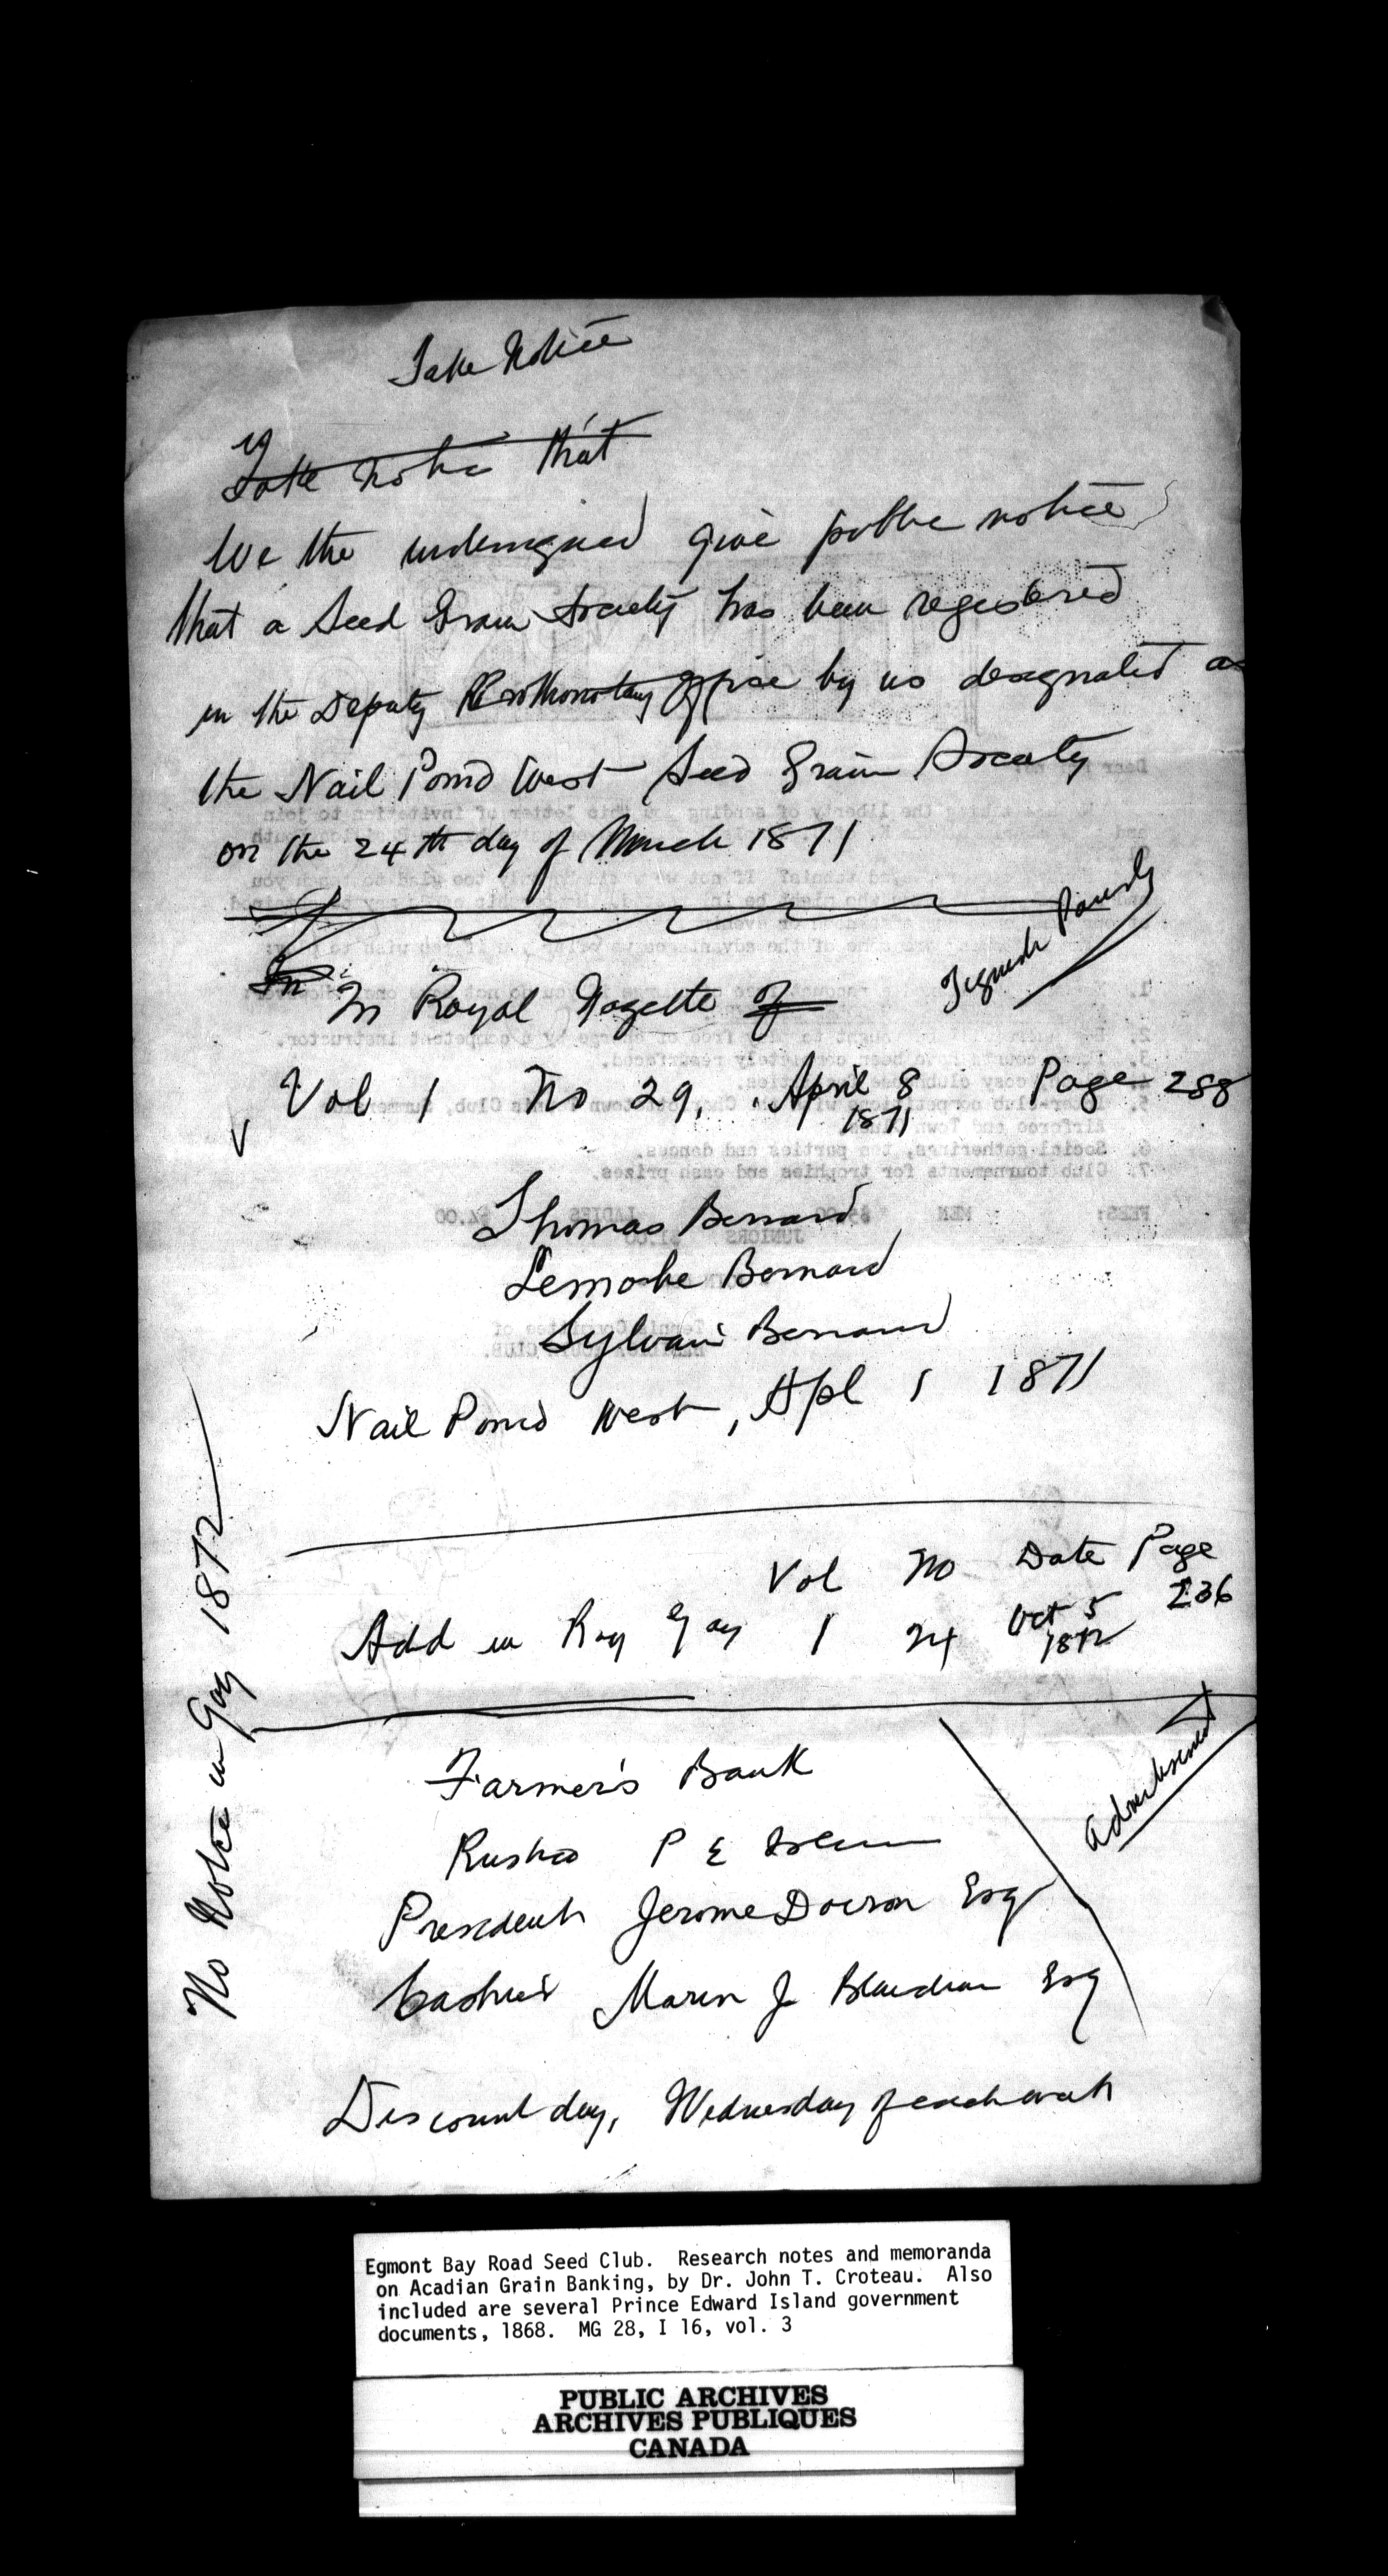 Take Notice
Take Notice that
We the undersigned give public notice
that a Seed Grain Society has been registered
in the Deputy Prothonotary Office by us designated as
the Nail Pond West Seed Grain Society
on the 24th day of March 1871
In
In Royal Gazette of
Vol 1 No 29, April 8 Page 288
1871
Thomas Bernard
Bernard
Sylvain Bernard
Nail Pond West, Apl 1 1871
Vol No Date Page
Add in Roy Gaz 1 24 Oct 5 236
1872
No Notice in Gaz 1872
Farmer's Bank
Advertisement
Rustico P E Island
President Jerome Doiron Esq
Cashier Marin J Blanchard Esq
Discount day, Wednesday of each week
Egmont Bay Road Seed Club. Research notes and memoranda
on Acadian Grain Banking, by Dr. John T. Croteau. Also
included are several Prince Edward Island government
documents, 1868. MG 28, I 16, vol. 3
PUBLIC ARCHIVES
ARCHIVES PUBLIQUES
CANADA